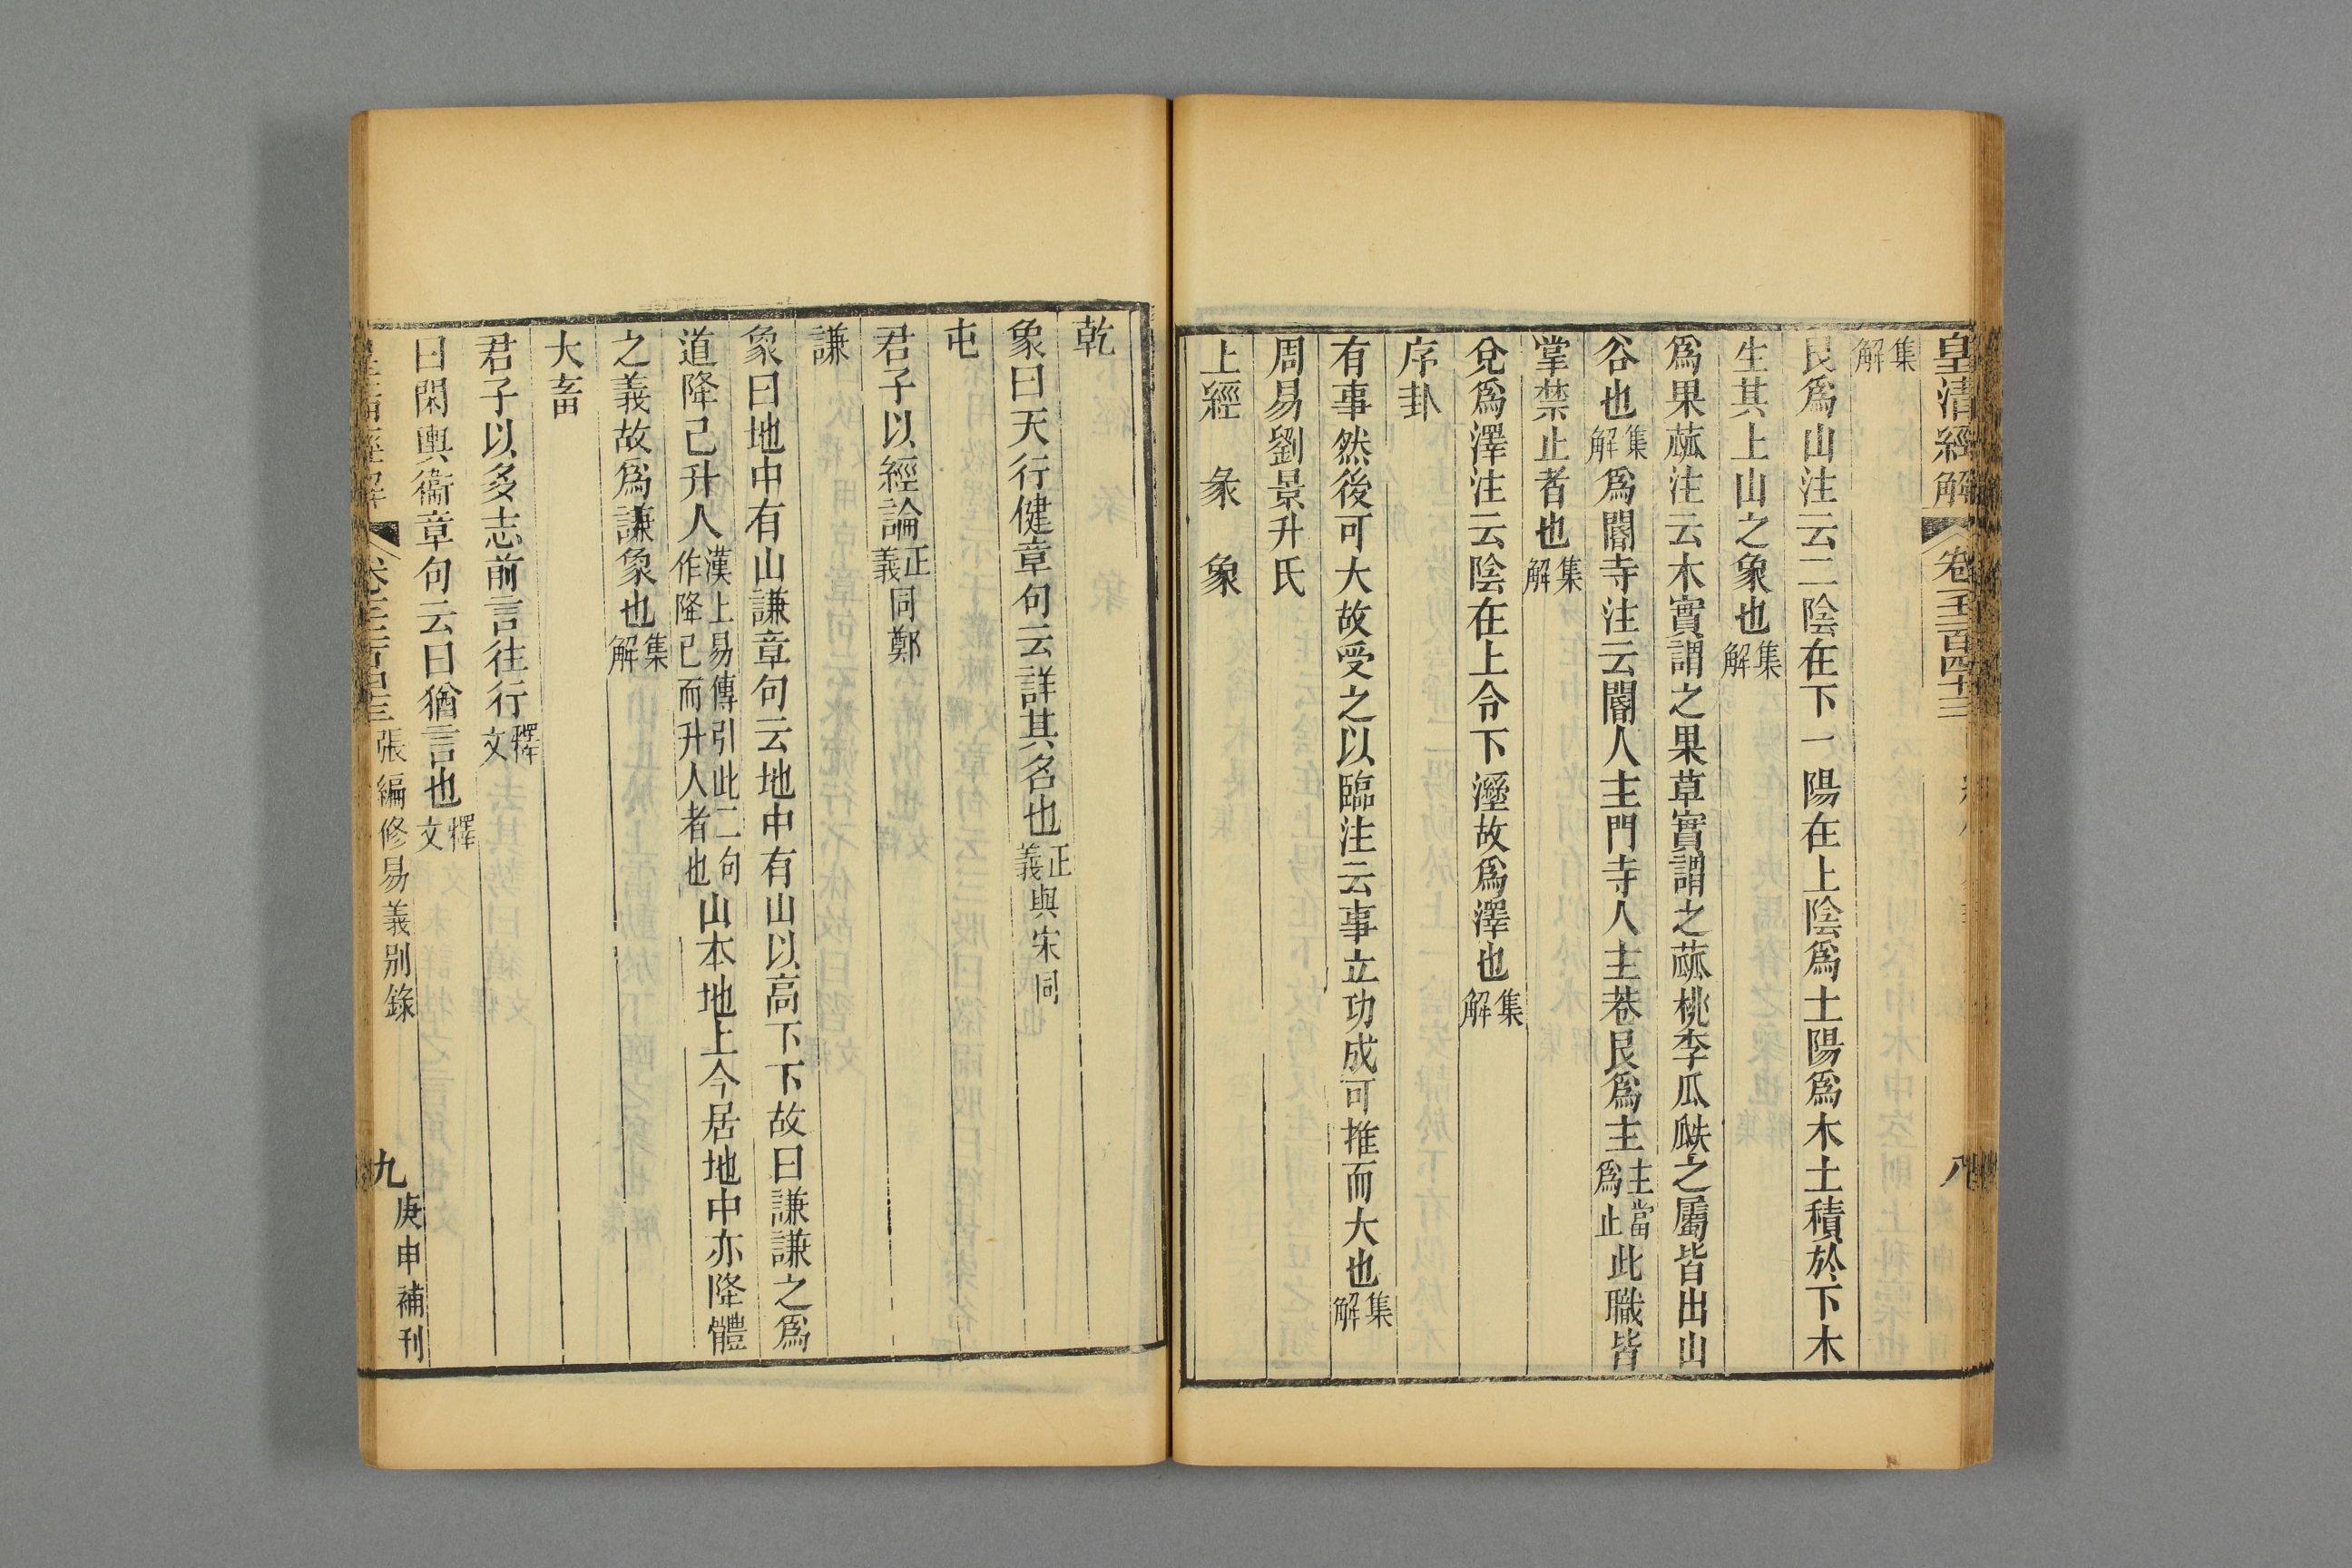 皇清經解 卷一千二百四十三 八
集解
艮爲山注云二陰在下一陽在上陰爲土陽爲木土積於下木
生其上山之象也集解
爲果蓏注云木實謂之果草實謂之蓏桃李瓜瓞之屬皆出山
谷也集解爲閽寺注云閽人主門寺人主巷艮爲主主當爲止此職皆
掌禁止者也集解
兌爲澤注云陰在上令下溼故爲澤也集解
序卦
有事然後可大故受之以臨注云事立功成可推而大也集解
周易劉景升氏
上經 彖 象
乾
象曰天行健章句云詳其名也正義與宋同
屯
君子以經論正義同鄭
謙
象曰地中有山謙章句云地中有山以高下下故曰謙謙之爲
道降己升人漢上易傳引此二句作降己而升人者也山本地上今居地中亦降體
之義故爲謙象也集解
大畜
君子以多志前言往行釋文
曰閑輿衞章句云曰猶言也釋文
張編修易義別錄 九 庚申補刊